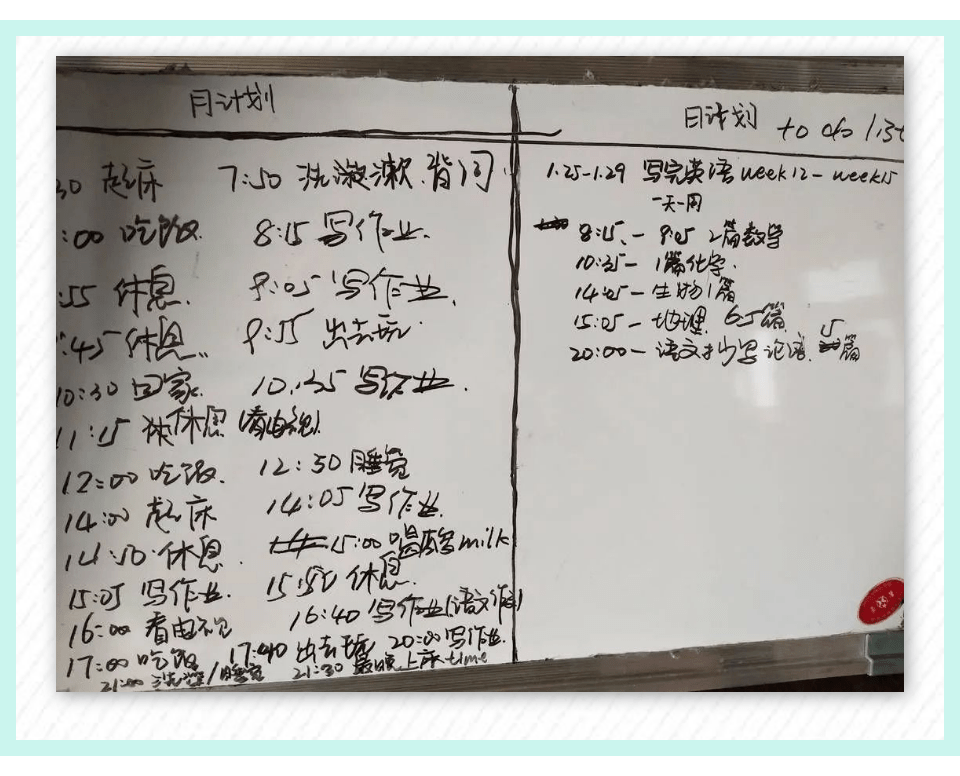 月计划
30 起床 7:50 洗漱漱 背词
:00 吃饭 8:15 写作业.
:55 休息. 9:05 写作业.
:45 休息.. 9:55 出去玩.
10:30 回家. 10:35 写作业.
11:15 休息 (看电视)
12:00 吃饭. 12:50 睡觉
14:00 起床 14:05 写作业.
14:50 休息. 15:00 喝酸 milk
15:05 写作业. 15:50 休息.
16:00 看电视 16:40 写作业(语文作)
17:00 吃饭 17:40 出去玩 20:00 写作业.
21:00 洗澡/睡觉 21:30 最晚上床 time
日计划 to do list
1.25-1.29 写完英语 week12-week15
一天一周
8:15. - 9:05 2篇数学
10:35 - 1篇化学.
14:05 - 生物1篇
15:05 - 地理. 篇
20:00 - 语文抄写论语. 15篇